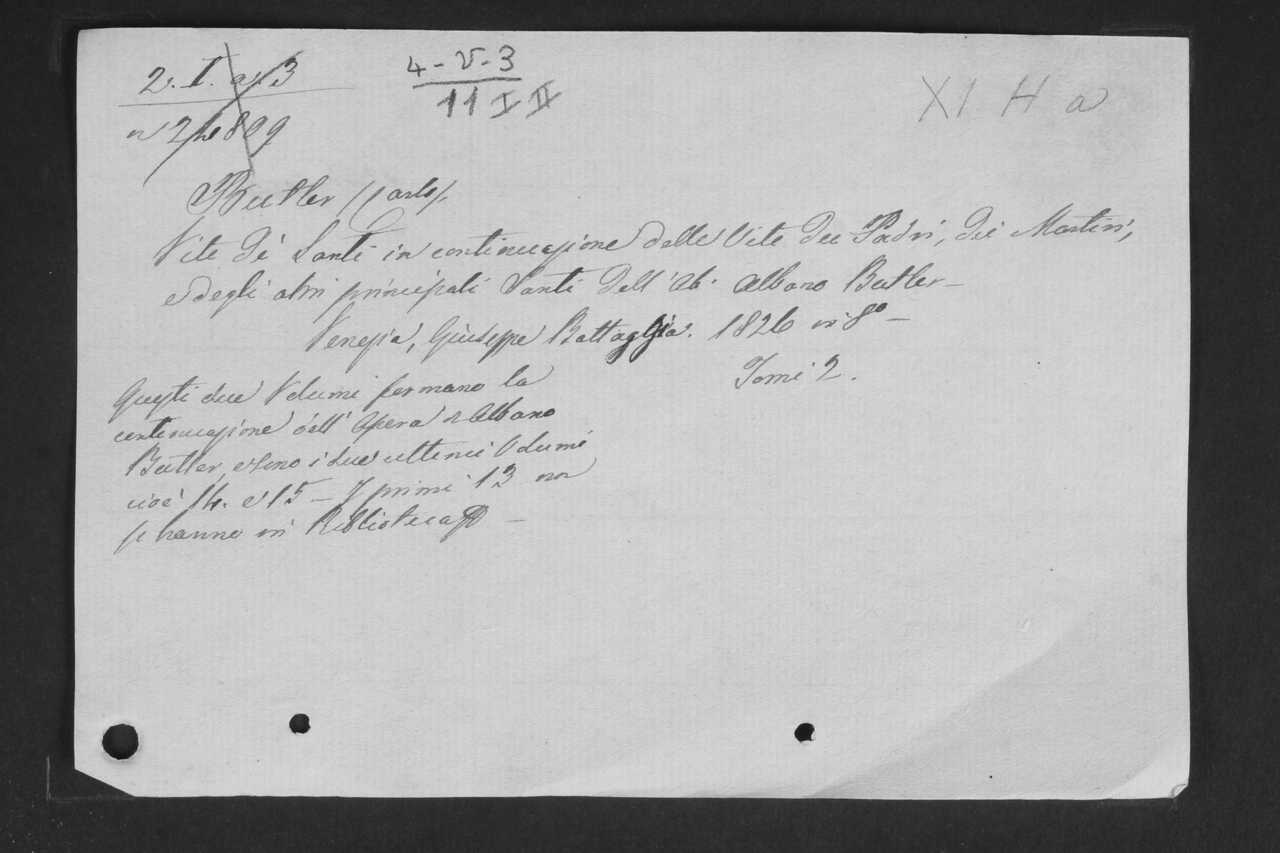 2. I. a. 3
4-V-3
11 I II
XI H a
Butler (Carlo).
Vite de' Santi in continuazione delle Vite dei Padri, dei Martiri,
e degli altri principali Santi dell' Ab. Albano Butler —
Venezia, Giuseppe Battaglia. 1826 in 8° —
Tomi 2.
Questi due Volumi formano la
continuazione dell' Opera di Albano
Butler, e sono i due ultimi Volumi
cioè 14. e 15 — I primi 13 non
si hanno in Biblioteca —